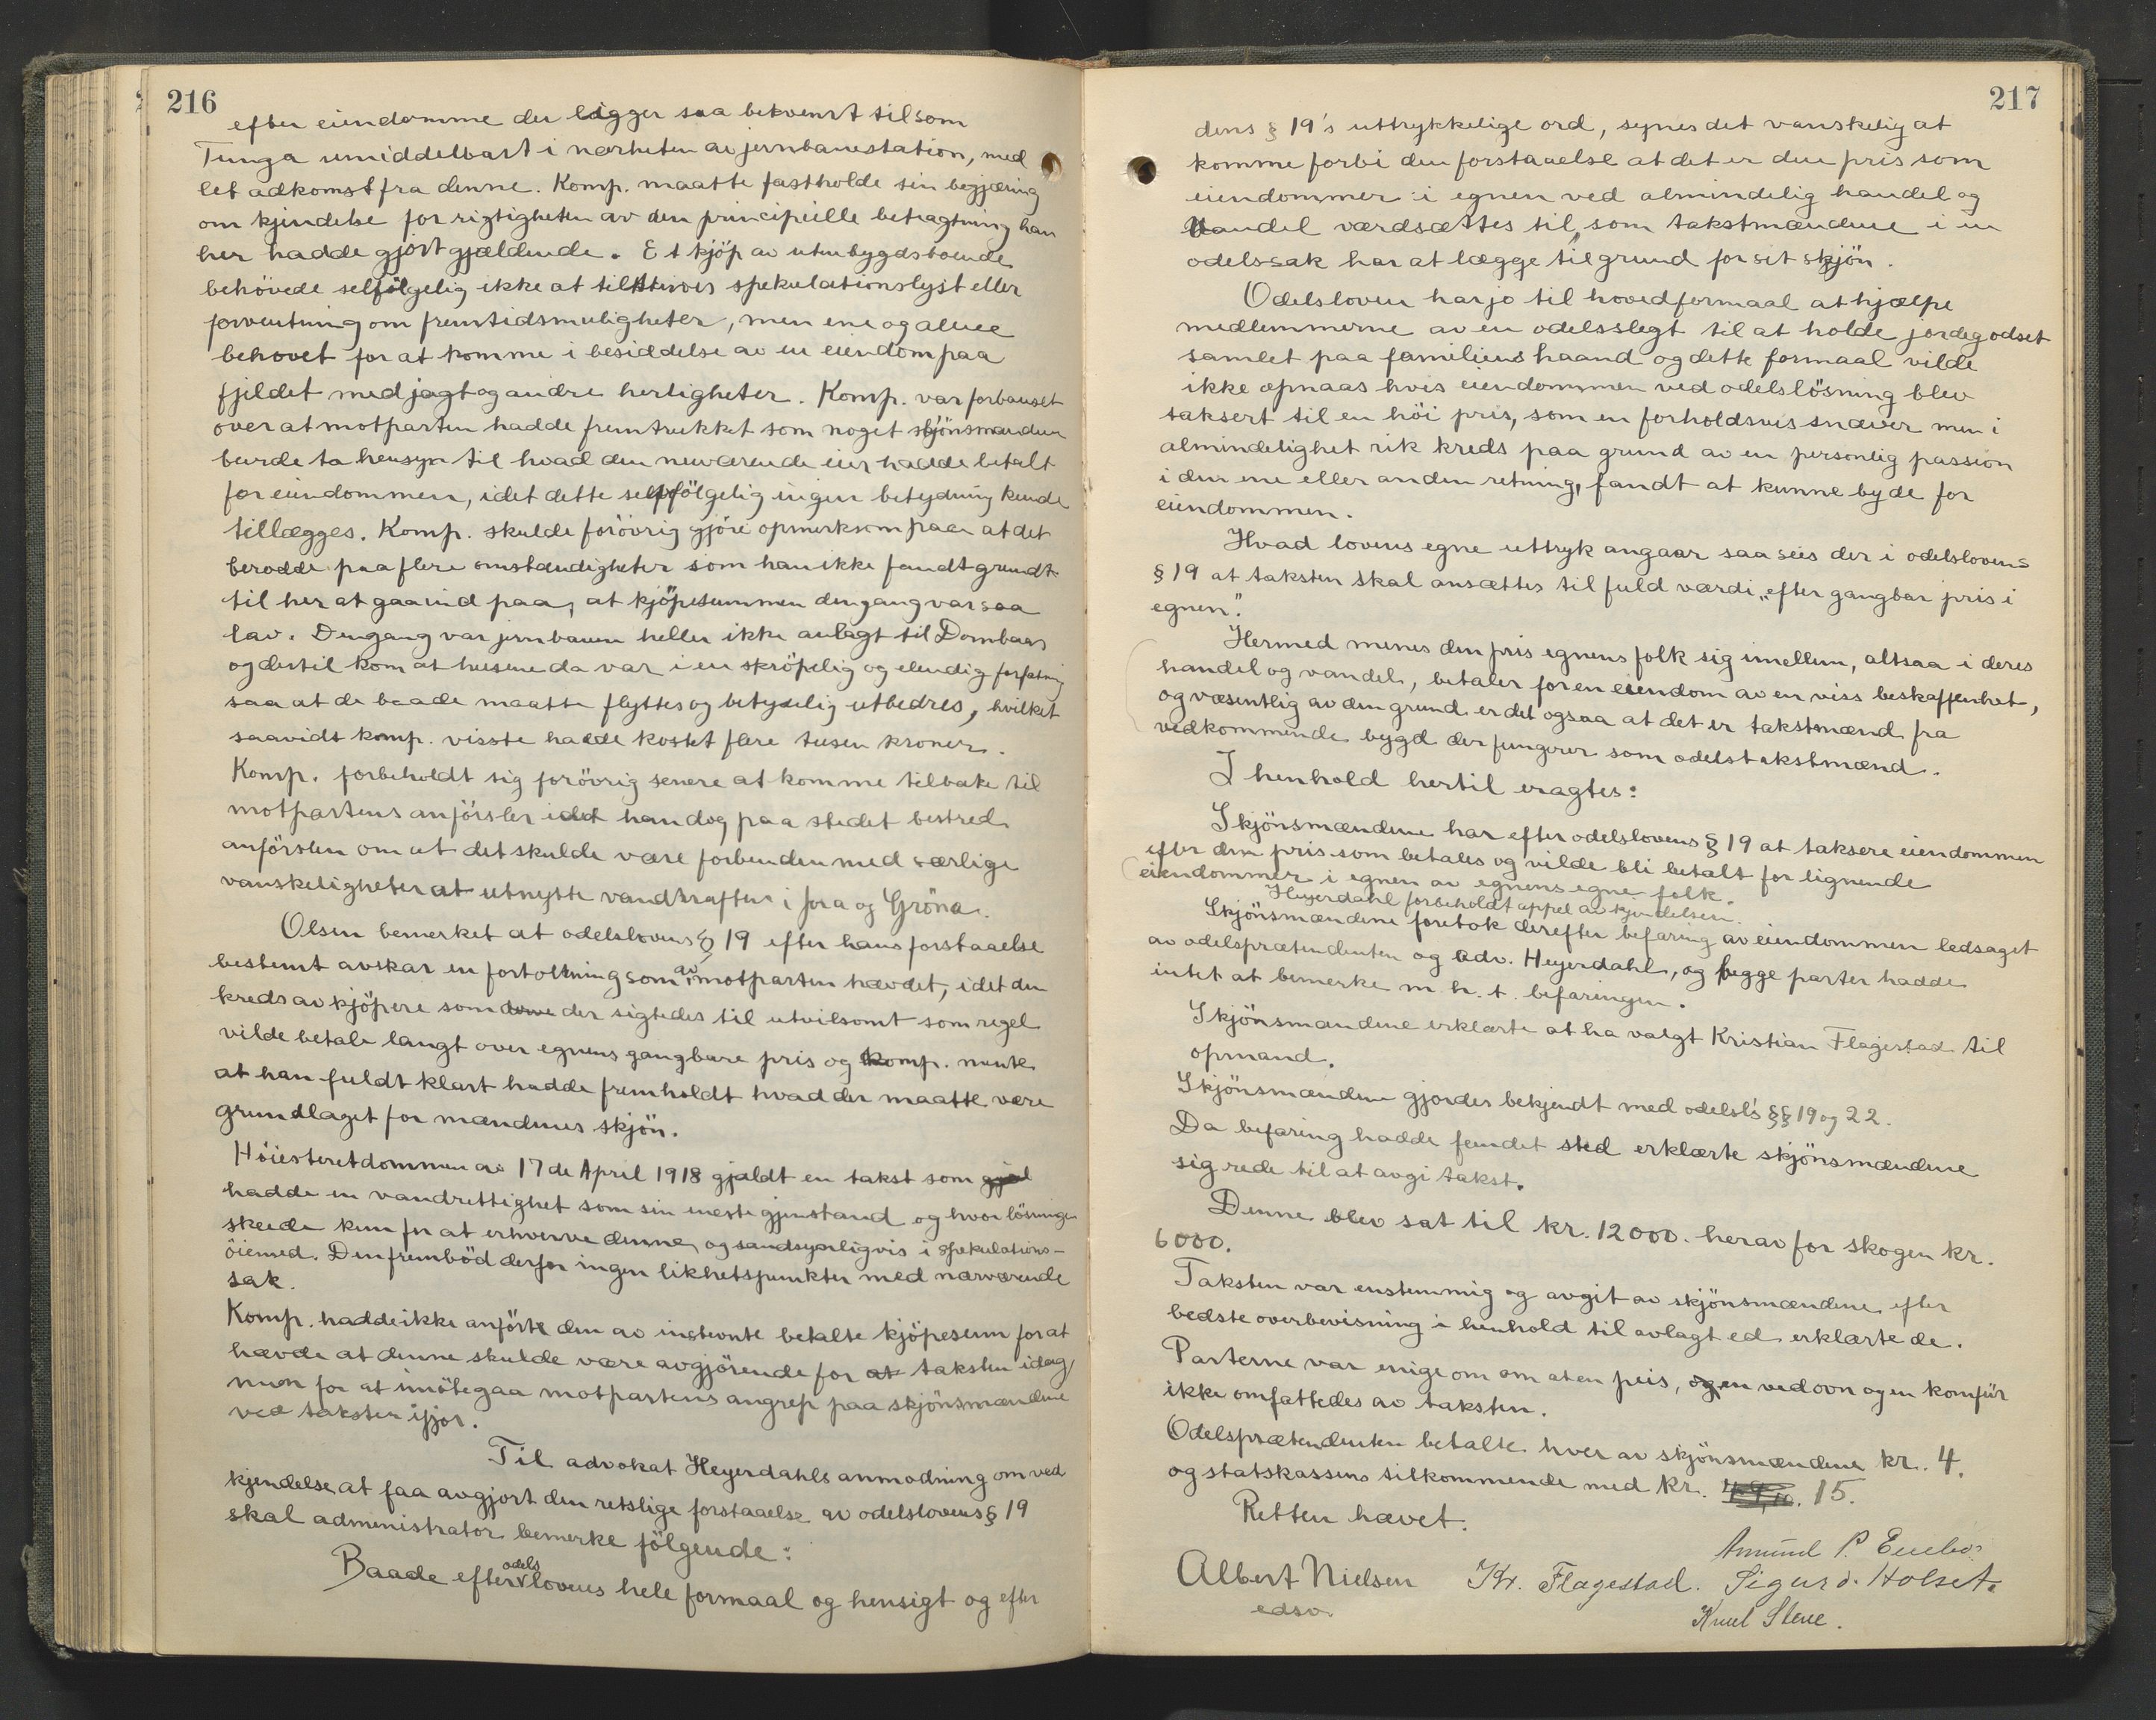 216
efter eiendomme der ligger saa bekvemt til som
Tunga umiddelbart i nærheten av jernbanestation, med
let adkomst fra denne. Komp. maatte fastholde sin begjæring
om kjendelse for rigtigheten av den principielle betragtning han
her hadde gjort gjældende. Et kjöp av utenbygdsboende
behövede selfölgelig ikke at tilskrives spekulationslyst eller
forventning om fremtidsmuligheter, men ene og alene
behovet for at komme i besiddelse av en eiendom paa
fjeldet med jagt og andre herligheter. Komp. var forbauset
over at motparten hadde fremtrukket som noget skjönsmændene
burde ta hensyn til hvad den nuværende eier hadde betalt
for eiendommen, idet dette selvfölgelig ingen betydning kunde
tillægges. Komp. skulde forövrig gjöre opmerksom paa at det
berodde paa flere omstændigheter som han ikke fandt grund
til her at gaa ind paa, at kjöpesummen dengang var saa
lav. Dengang var jernbanen heller ikke anlagt til Dombaas
og dertil kom at husene da var i en skröpelig og elendig forfatning
saa at de baade maatte flyttes og betydelig utbedres, hvilket
saavidt komp. visste hadde kostet flere tusen kroner.
Komp. forbeholdt sig forövrig senere at komme tilbake til
motpartens anförsler idet han dog paa stedet bestred
anförslen om at det skulde være forbunden med særlige
vanskeligheter at utnytte vandkraften i Jora og Gröna.
Olsen bemerket at odelslovens § 19 efter hans forstaaelse
bestemt avskar en fortolkning som av motparten hævdet, idet den
kreds av kjöpere som denne der sigtedes til utvilsomt som regel
vilde betale langt over egnens gangbare pris og komp. mente
at han fuldt klart hadde fremholdt hvad der maatte være
grundlaget for mændenes skjön.
Höiesteretdommen av 17de April 1918 gjaldt en takst som gjal
hadde en vandrettighet som sin eneste gjenstand og hvor lösningen
skede kun for at erhverve denne, og sandsynligvis i spekulations-
öiemed. Den fremböd derfor ingen likhetspunkter med nærværende
sak.
Komp. hadde ikke anförte den av instevnte betalte kjöpesum for at
hævde at denne skulde være avgjörende for at taksten idag,
men for at imötegaa motpartens angrep paa skjönsmændene
ved taksten ifjor.
Til advokat Heyerdahls anmodning om ved
kjendelse at faa avgjort den retslige forstaaelse av odelslovens § 19
skal administrator bemerke fölgende:
Baade efter odelslovens hele formaal og hensigt og efter
217
dens § 19's uttrykkelige ord, synes det vanskelig at
komme forbi den forstaaelse at det er den pris som
eiendommer i egnen ved almindelig handel og
vandel værdsættes til, som takstmændene i en
odelssak har at lægge til grund for sit skjön.
Odelsloven har jo til hovedformaal at hjælpe
medlemmerne av en odelsslegt til at holde jordegodset
samlet paa familiens haand og dette formaal vilde
ikke opnaas hvis eiendommen ved odelslösning blev
taksert til en höi pris, som en forholdsvis snæver men i
almindelighet rik kreds paa grund av en personlig passion
i den ene eller anden retning, fandt at kunne byde for
eiendommen.
Hvad lovens egne uttryk angaar saa seies der i odelslovens
§ 19 at taksten skal ansættes til fuld værdi „efter gangbar pris i
egnen".
Hermed menes den pris egnens folk sig imellem, altsaa i deres
handel og vandel, betaler for en eiendom av en viss beskaffenhet,
og væsentlig av den grund er det ogsaa at det er takstmænd fra
vedkommende bygd der fungerer som odelstakstmænd.
I henhold hertil eragtes:
Skjönsmændene har efter odelslovens § 19 at taksere eiendommen
efter den pris som betales og vilde bli betalt for lignende
eiendommer i egnen av egnens egne folk.
Heyerdahl forbeholdt appel av kjendelsen.
Skjönsmændene foretok derefter befaring av eiendommen ledsaget
av odelsprætendenten og adv. Heyerdahl, og begge parter hadde
intet at bemerke m.h.t. befaringen.
Skjönsmændene erklærte at ha valgt Kristian Flagestad til
opmand.
Skjönsmændene gjordes bekjendt med odelsl's §§ 19 og 22.
Da befaring hadde fundet sted erklærte skjönsmændene
sig rede til at avgi takst.
Denne blev sat til kr. 12000. herav for skogen kr.
6000.
Taksten var enstemmig og avgit av skjönsmændene efter
bedste overbevisning i henhold til avlagt ed erklærte de.
Parterne var enige om om at en peis, og en vedovn og en komfür
ikke omfattedes av taksten.
Odelsprætendenten betalte hver av skjönsmændene kr. 4.
og statskassens tilkommende med kr. 15.
Retten hævet.
Amund P.
Albert Nielsen Kr. Flagestad. Sigurd. Holset.
edsv.
Knut Stene.